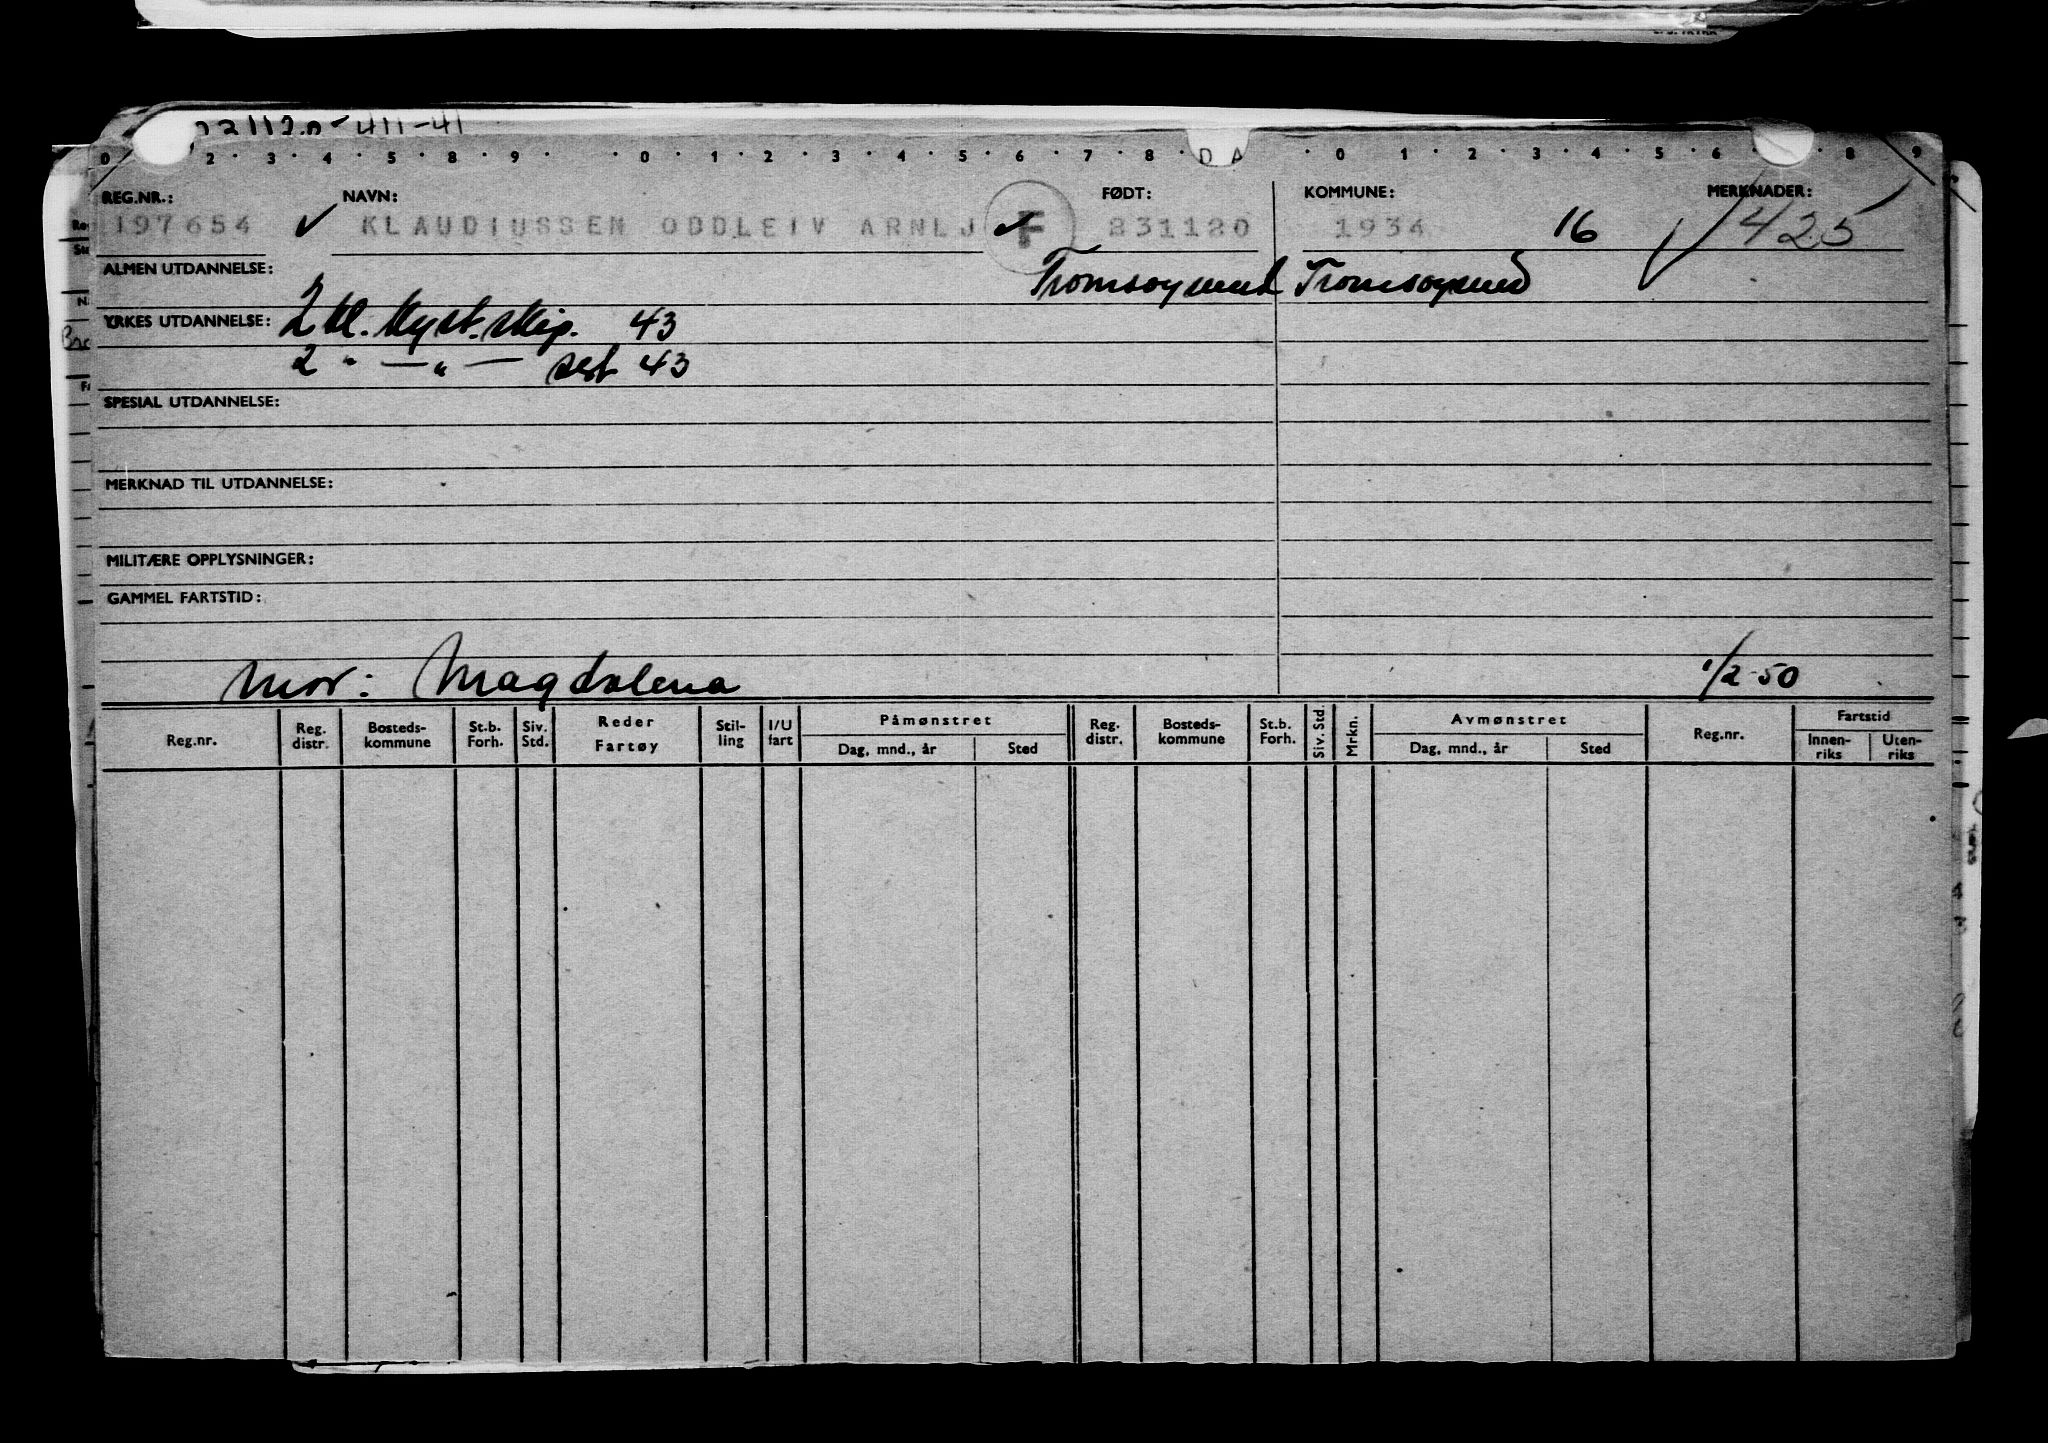 0 2 3 4 5 8 9 0 1 2 3 4 5 6 7 8 D A 0 1 2 3 4 5 6 8 9
REG.NR.: NAVN: FØDT: KOMMUNE: MERKNADER:
197654 ✓ KLAUDIUSSEN ODDLEIV ARNLJ ✓ F 231120 1934 16 ✓ 425
ALMEN UTDANNELSE: Tromsøysund Tromsøysund
YRKES UTDANNELSE: 2 kl. kyst.skip. 43
2 " — " — sert 43
SPESIAL UTDANNELSE:
MERKNAD TIL UTDANNELSE:
MILITÆRE OPPLYSNINGER:
GAMMEL FARTSTID:
Mor: Magdalena 1/2-50
Reg.nr. Reg. distr. Bosteds- kommune St.b. Forh. Siv. Std. Reder Fartøy Stil- ling I/U fart Påmønstret Dag, mnd., år Sted Reg. distr. Bosteds- kommune St.b. Forh. Siv. Std. Mrkn. Avmønstret Dag, mnd., år Sted Reg.nr. Fartstid Innen- riks Uten- riks